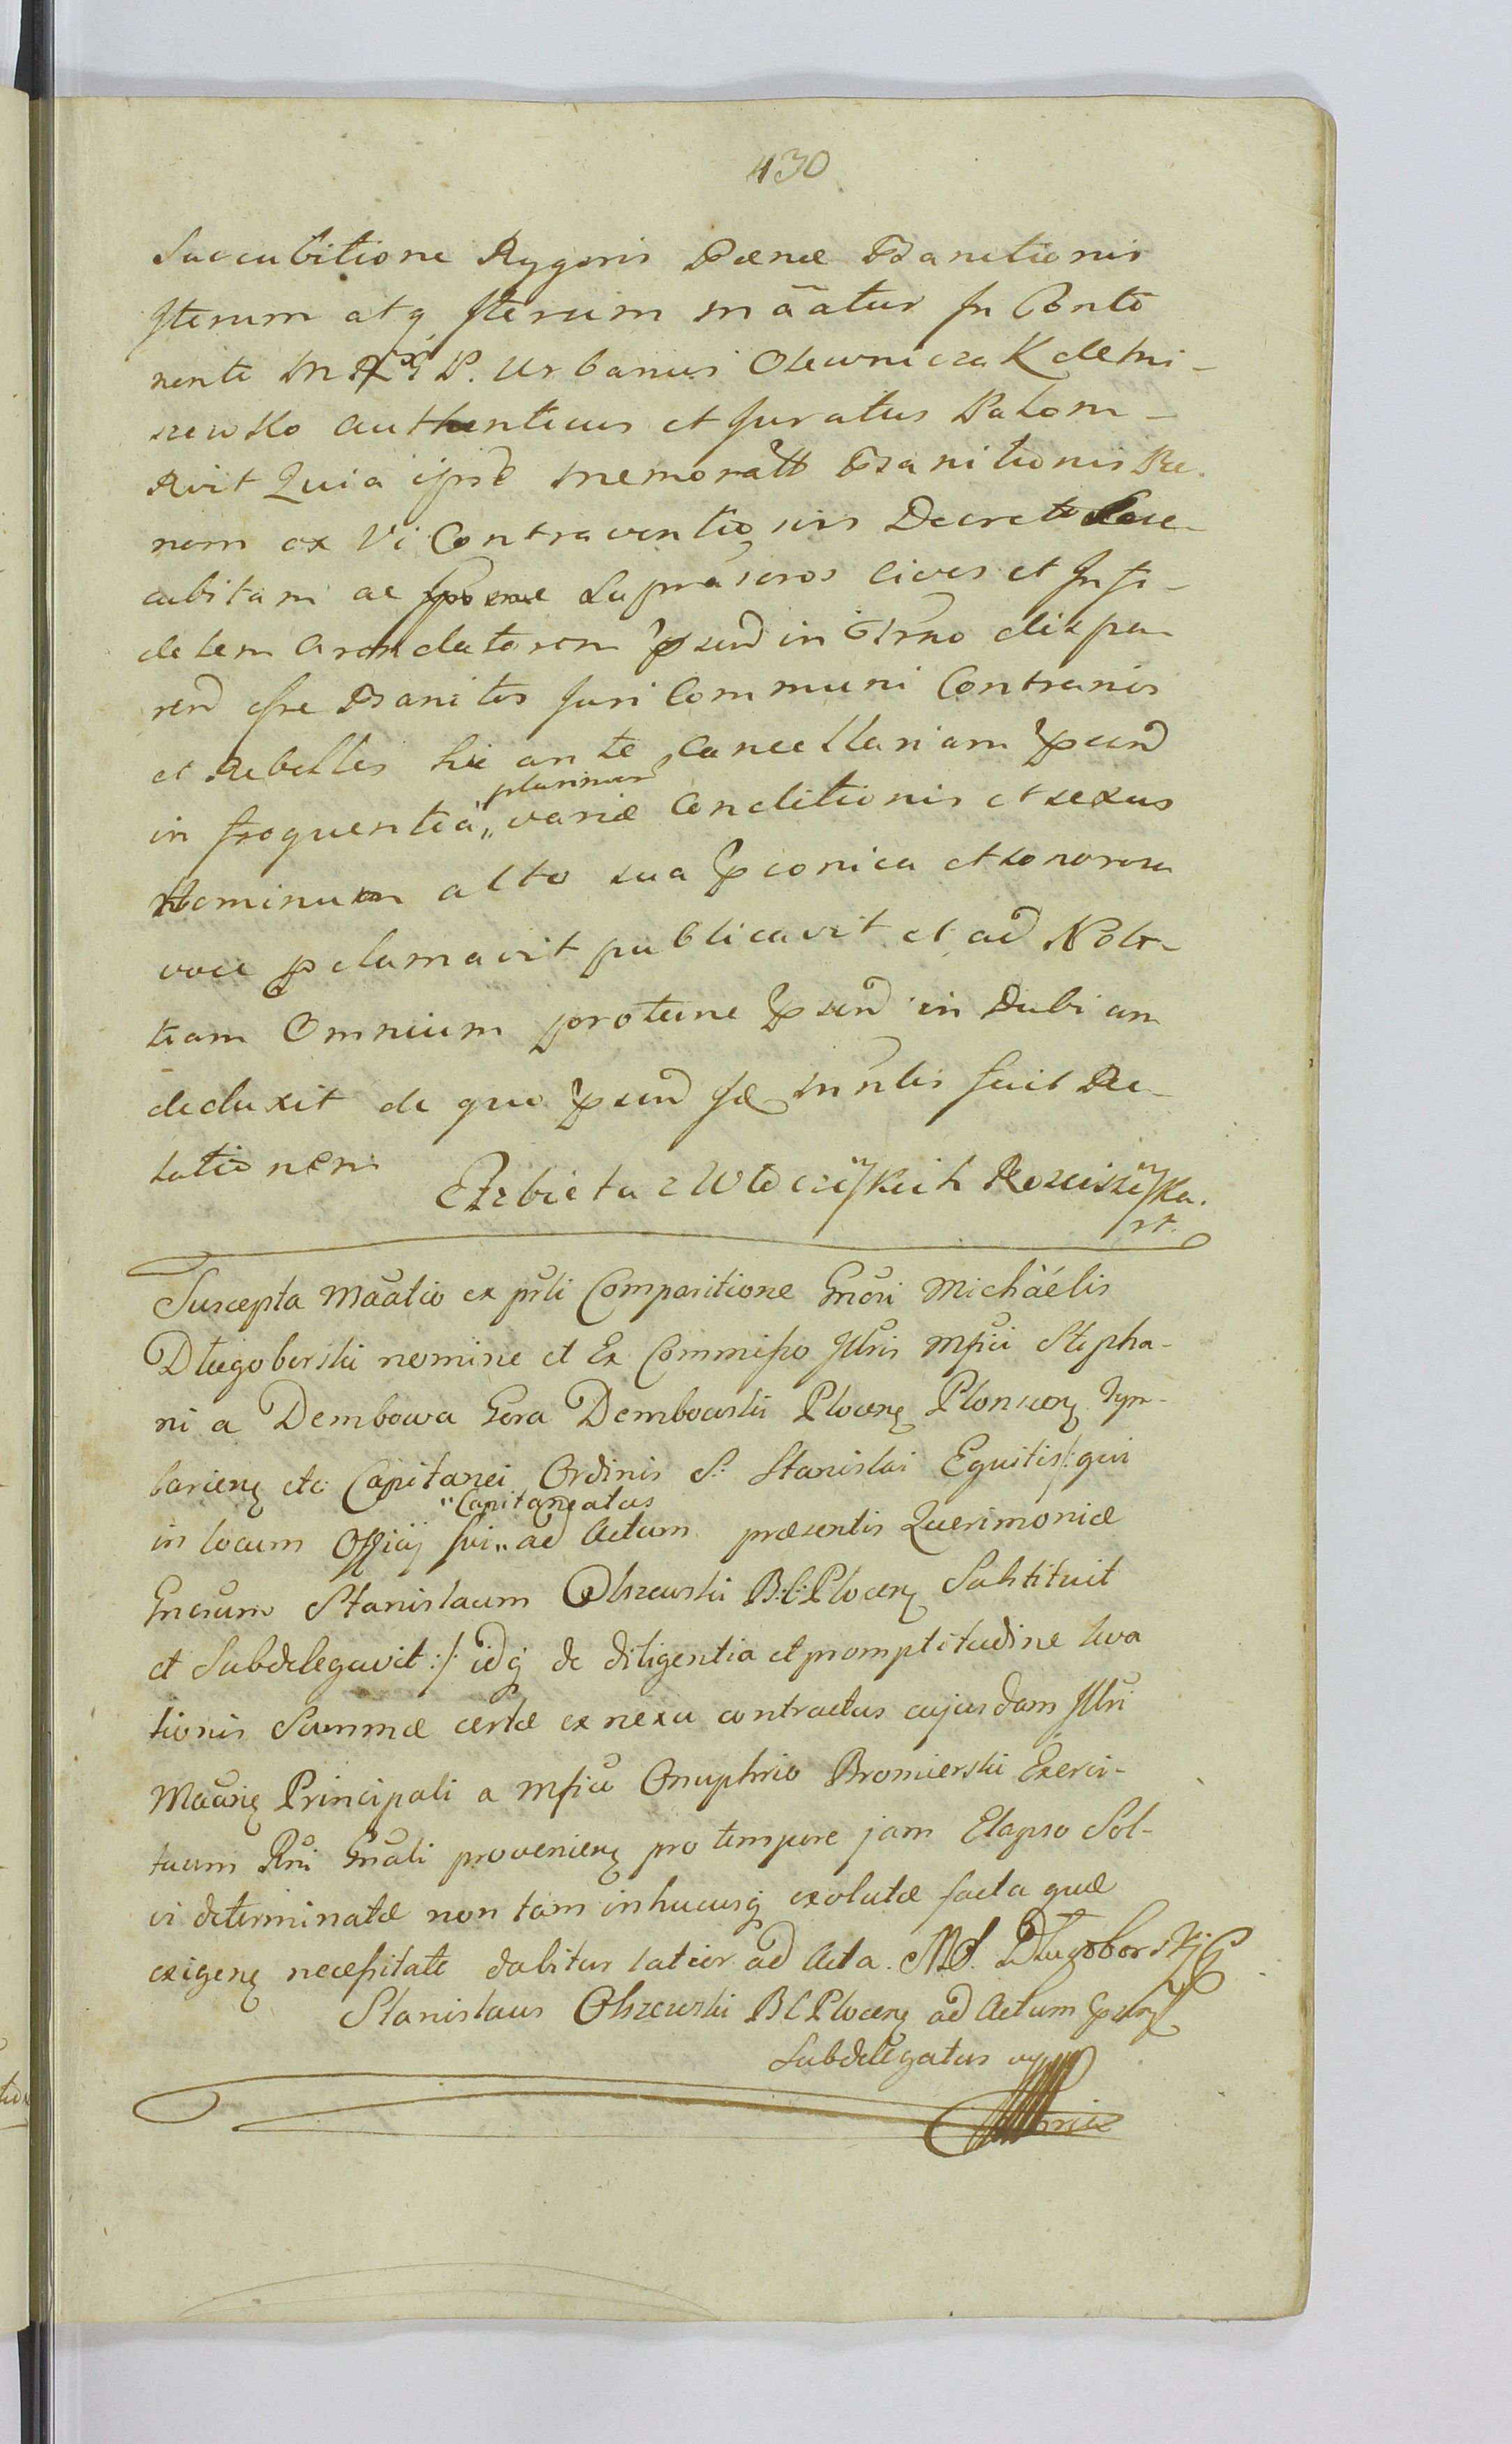 430
Succubitione Rygoris Pænæ Banitionis
Iterum atq Iterum mãatur In Conti
nenti P. Urbanus Olewniczak de Mni-
szewko authenticus et Juratus Palam
Quia ipse memoratt Banitionis Pæ
nam ex Vi Contraventio nis Decreto Succ
cubitam ac supra scros cives et Infi-
delem arendatorem psend in Grno dispa
rend esse Banitos Juri Communi Contrarios
et Rebelles hic ante Cancellariam psend
plurimor
in frequentia „ variæ Conditionis et sexus
Hominum alto sua pconica et sonorosa
voce pclamavit publicavit et ad Noti-
tiam Omnium protunc psend in Dubi am
deduxit de quo psend fæ mnlis suit Re-
lationem
Elzbieta z Włoczyskich Kosciszyska.
Suscepta Maatio ex prti Comparitione Gnosi Michäélis
Długoborski nomine et Ex Commisso Jllris Mfici Stepha-
ni a Dembowa Gora Dembowski Plocen Plonscen Tyn-
barien etc Capitanei Ordinis S: Stanislai Equitis /: qui
„Capitaneatus
in locum Officij sui „ ad Actum præsentis Querimoniæ
Gnosum Stanislaum Olszewski B:C:Plocen Substituit
et Subdelegavit :/: idq de diligentia et promptitudine Leva
tionis Summæ certæ ex nexu contractus cujusdam Jllri
Maãnte Principali a Mfico Onuphrio Bromierski Exerci-
tuum Rni Gnali provenien pro tempore jam Elapso Sol-
vi determinatæ non tam inhucusq exolutæ facta quæ
exigen necessitate dabitur latior ad Acta. Długoborski
Stanislaus Olszewski B C Plocen ad Actum psen
Subdelegatus